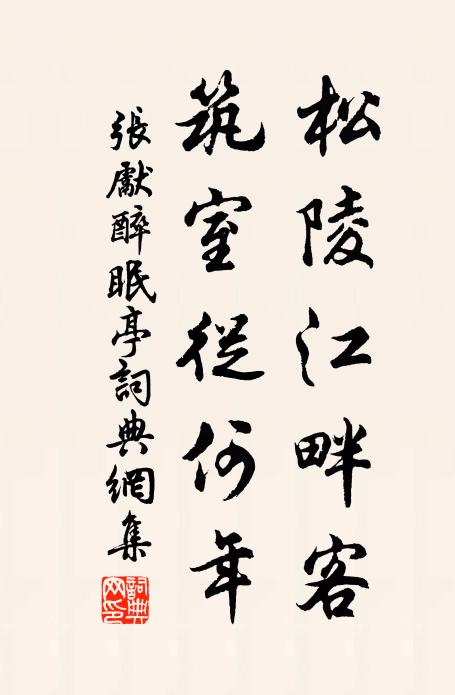 松陵江畔客
筑室從何年
張獻醉眠亭詞典網集
詞典網印